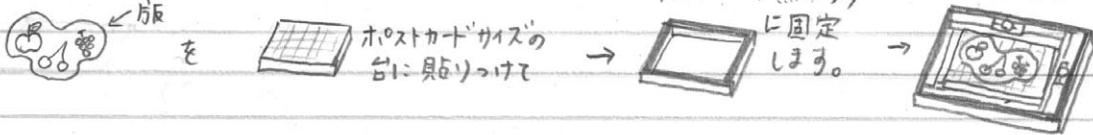 ←版
を
ポストカードサイズの
台に貼りつけて
→
に固定
します。
→